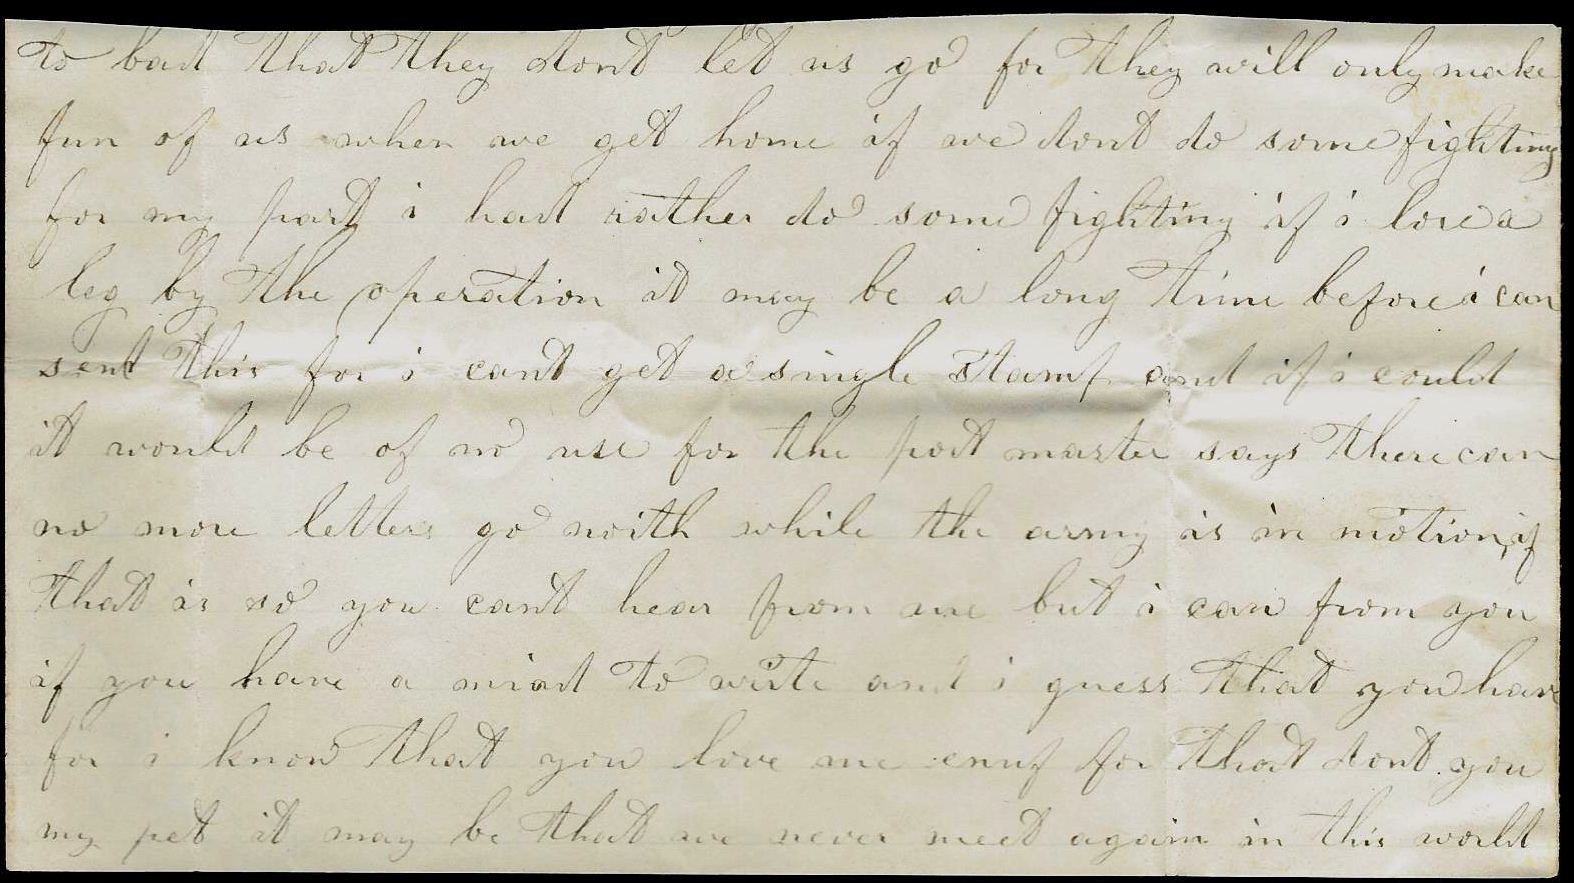 to bad that they dont let us go for they will only make
fun of us when we get home if we dont do some fighting
for my part i had rather do some fighting if i lose a
leg by the operation it may be a long time before i can
send this for i cant get a single stamp and if i could
it would be of no use for the post master says there can
no more letters go north while the army is in motion, if
that is so you cant hear from me but i can from you
if you have a mind to write and i guess that you have
for i know that you love me enuf for that dont you
my pet it may be that we never meet again in this world